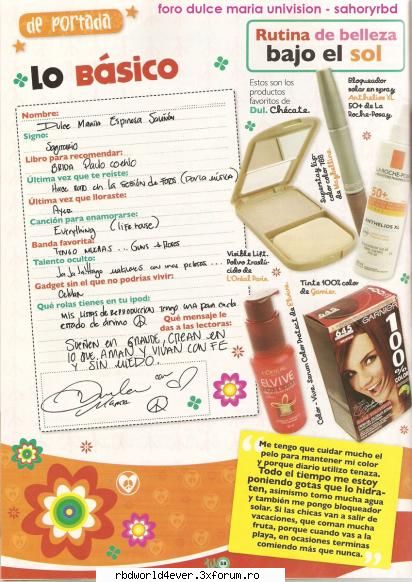 foro dulce maria univision - sahoryrbd
de Portada
Lo BÁSico
Nombre:
Dulce María Espinosa Saviñón
Signo:
Sagitario
Libro para recomendar:
BRIDA Paulo Coelho
Última vez que te reíste:
Hace rato en la sesión de fotos (Por la música)
Última vez que lloraste:
Ayer
Canción para enamorarse:
Everything (Lifehouse)
Banda favorita:
TENGO MUCHAS... Guns & Roses
Talento oculto:
Ja Ja Ja Hago malabares con una pelota...
Gadget sin el que no podrías vivir:
Celular
Qué rolas tienes en tu ipod:
Mis listas de REPRODUCCIÓN tengo una para cada
estado de ánimo
Qué mensaje le
das a las lectoras:
SUEÑEN EN GRANDE, CREAN EN
lo QUE AMAN Y VIVAN CON FE
Y SIN MIEDO.
Dulce
María
Rutina de belleza
bajo el sol
Estos son los
productos
favoritos de
Dul. Chécate.
Bloqueador
solar en spray
Anthelios XL
50+ de La
Roche-Posay.
LA ROCHE-POSAY
50+
ANTHELIOS XL
Visible Lift.
Polvo traslú-
cido de
L'Oréal Paris.
Tinte 100% color
de Garnier.
645
GARNIER
100
% color
ELVIVE
Color - Vive. Serum Color Protect de Elvive.
Me tengo que cuidar mucho el
pelo para mantener mi color
y porque diario utilizo tenaza.
Todo el tiempo me estoy
poniendo gotas que lo hidra-
ten, asimismo tomo mucha agua
y también me pongo bloqueador
solar. Si las chicas van a salir de
vacaciones, que coman mucha
fruta, porque cuando vas a la
playa, en ocasiones terminas
comiendo más que nunca.
rbdworld4ever.3xforum.ro